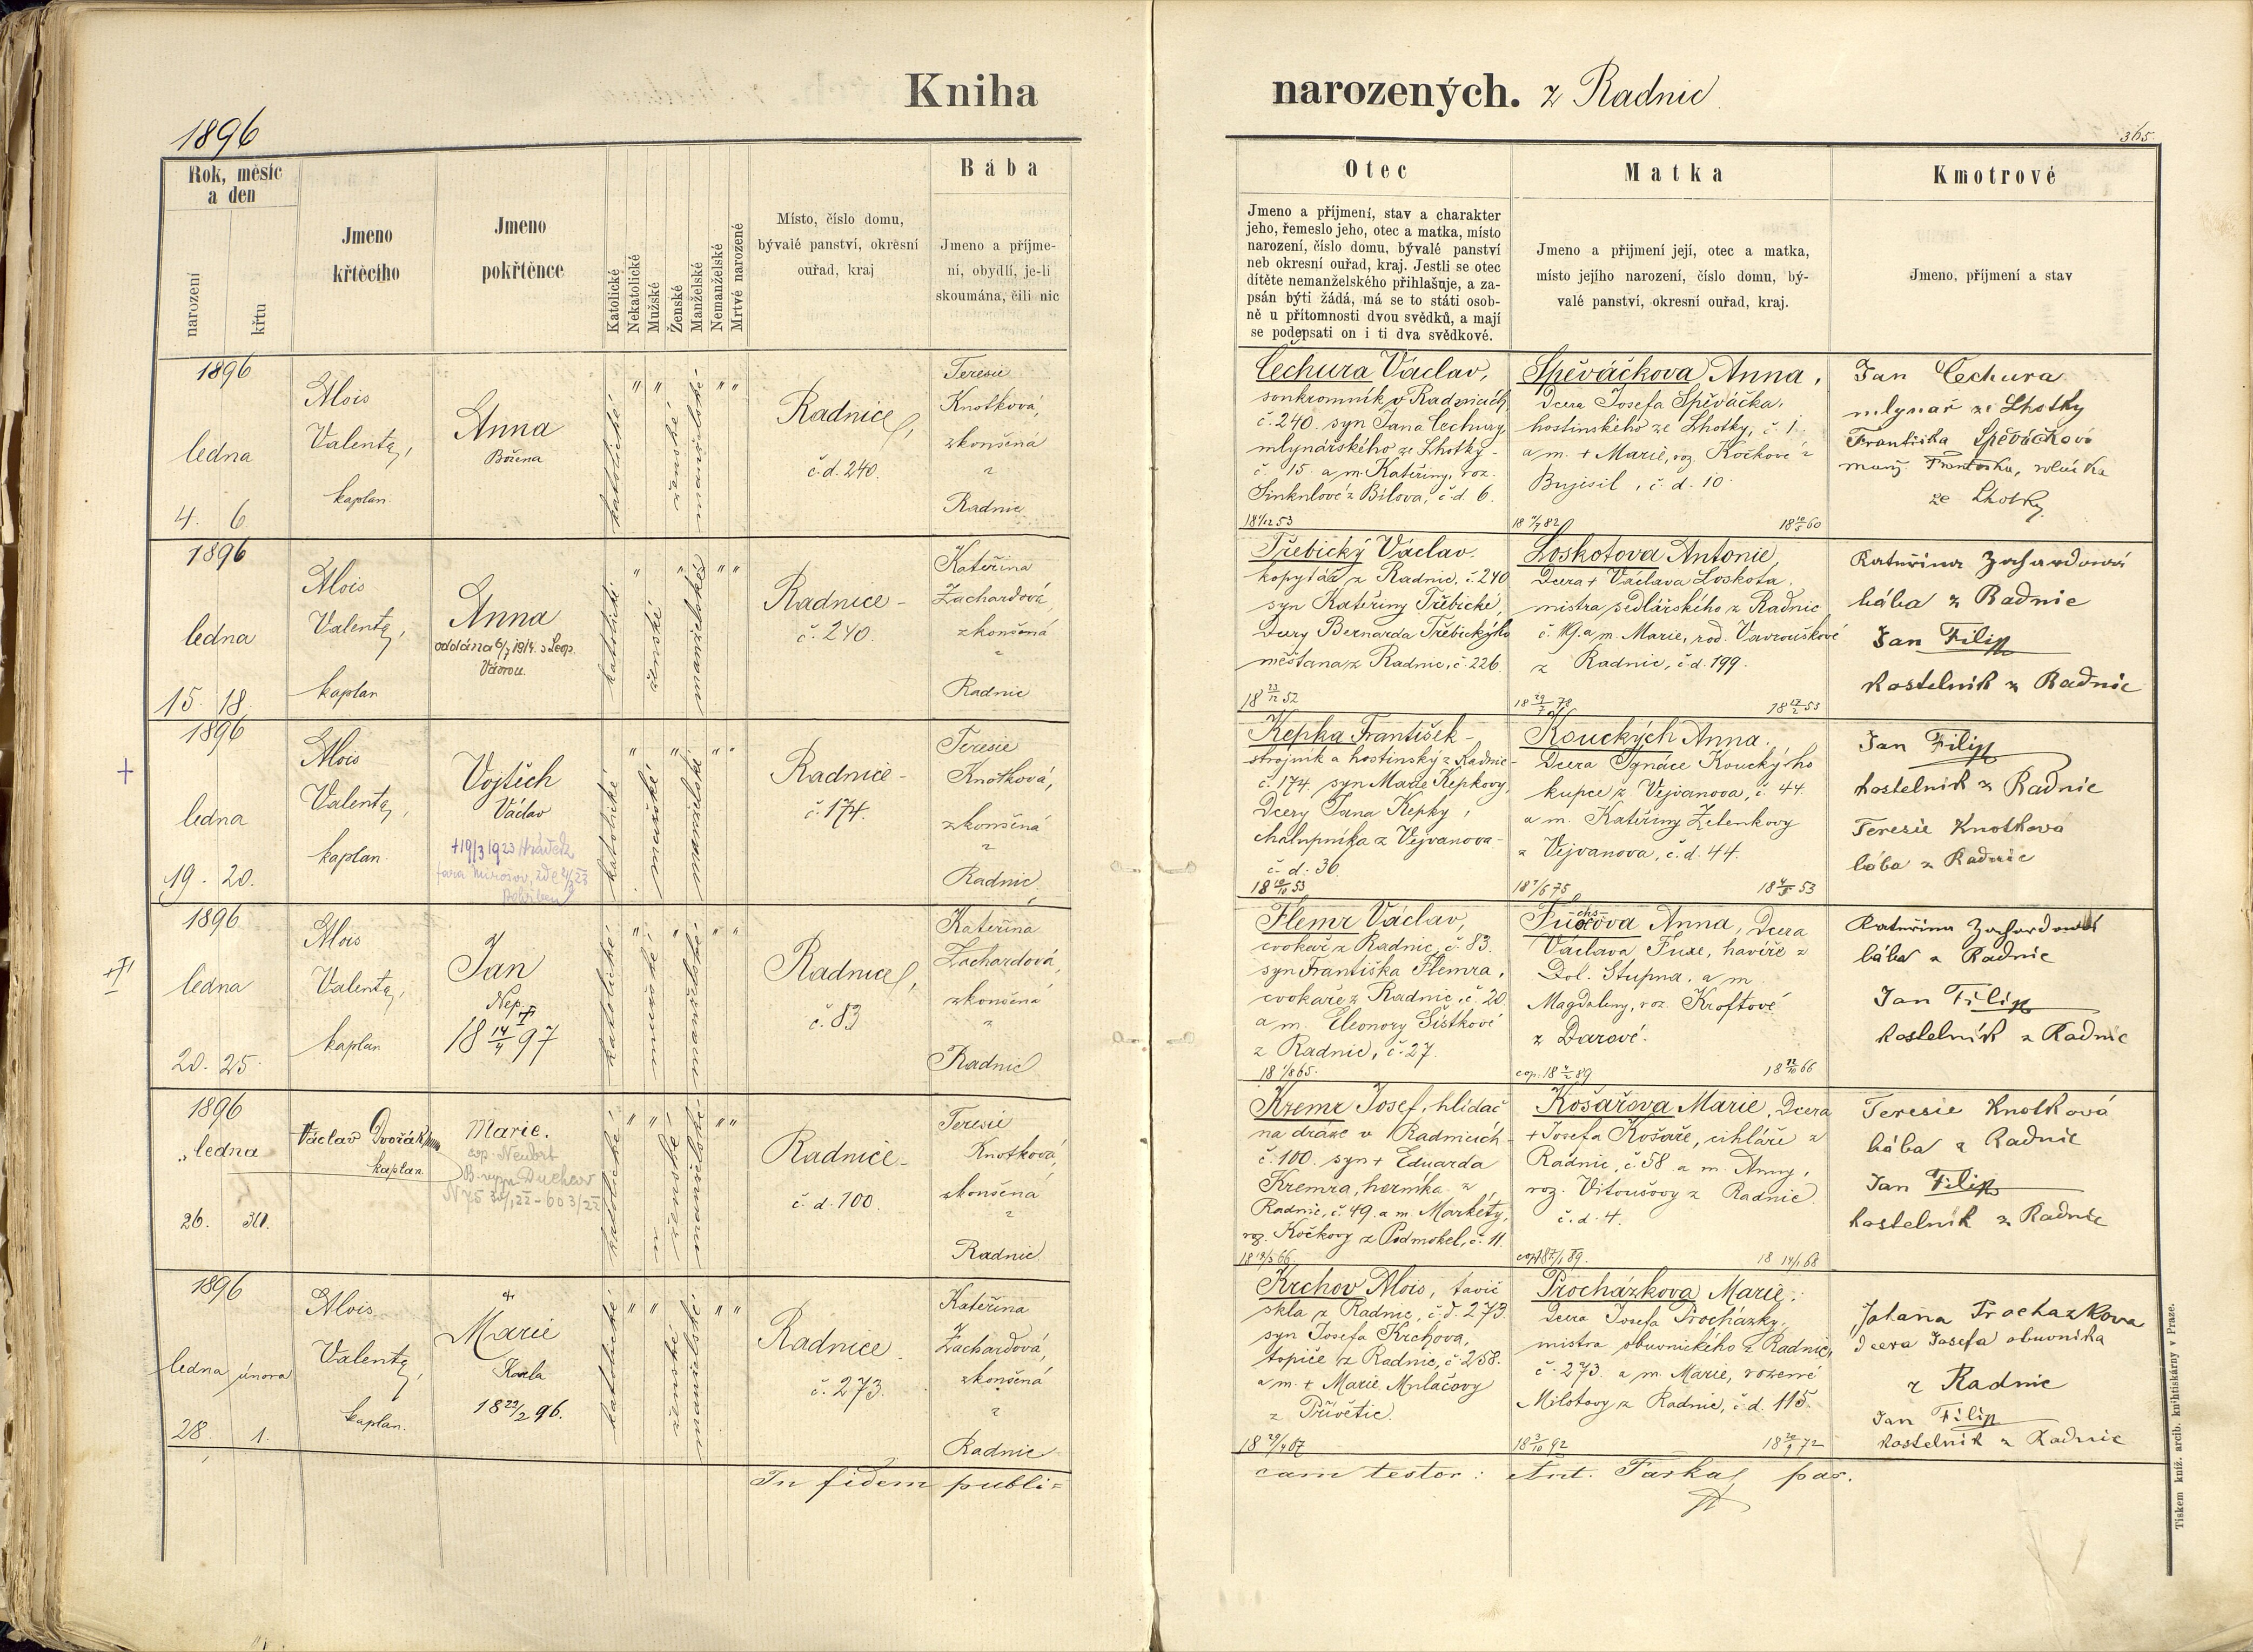 Kniha
narozených. z Radnic
1896
365.
Rok, měsíc
a den
narození
křtu
Jmeno
křtěcího
Jmeno
pokřtěnce
Katolické
Nekatolické
Mužské
Ženské
Manželské
Nemanželské
Mrtvé narozené
Místo, číslo domu,
bývalé panství, okresní
ouřad, kraj
Bába
Jmeno a příjme-
ní, obydlí, je-li
skoumána, čili nic
Otec
Jmeno a příjmení, stav a charakter
jeho, řemeslo jeho, otec a matka, místo
narození, číslo domu, bývalé panství
neb okresní ouřad, kraj. Jestli se otec
dítěte nemanželského přihlašuje, a za-
psán býti žádá, má se to státi osob-
ně u přítomnosti dvou svědků, a mají
se podepsati on i ti dva svědkové.
Matka
Jmeno a přijmení její, otec a matka,
místo jejího narození, číslo domu, bý-
valé panství, okresní ouřad, kraj.
Kmotrové
Jmeno, příjmení a stav
1896
ledna
4. 6.
Alois
Valenta,
kaplan.
Anna
Božena
katolické
" "
ženské
manželské
" "
Radnice,
č. d. 240.
Teresie
Knotková,
zkoušená
z
Radnic
Čechura Václav,
soukromník v Radnicích
č. 240. syn Jana Čechury,
mlynářského ze Lhotky
č. 15. a m. Kateřiny, roz.
Šinknlové z Bílova, č. d. 6.
18 1/12 53
Spěváčkova Anna,
Dcera Josefa Spěváčka,
hostinského ze Lhotky, č. 1.
a m. + Marie, roz. Kočkové z
Bujisil, č. d. 10.
18 7/7 82
18 19/5 60
Jan Čechura
mlynář ze Lhotky
Františka Spěváčková
manž. Františka, rolníka
ze Lhotky
1896
ledna
15. 18.
Alois
Valenta,
kaplan
Anna
oddána 6/7 1914. s Leop.
Vávrou.
katolické
"
ženské
"
manželské
" "
Radnice
č. 240.
Kateřina
Zachardová,
zkoušená
z
Radnic
Třebický Václav.
kopytář z Radnic, č. 240
syn Kateřiny Třebické,
Dcery Bernarda Třebického
měštana z Radnic, č. 226.
18 23/12 52
Loskotova Antonie,
Dcera + Václava Loskota.
mistra sedlářského z Radnic
č. 19. a m. Marie, rod. Vavrouškové
z Radnic, č. d. 199.
18 29/7 78
18 12/2 53
Kateřina Zachardová
bába z Radnic
Jan Filip
kostelník z Radnic
1896
ledna
19. 20.
Alois
Valenta,
kaplan
Vojtěch
Václav
+19/3 1923 Hrádek
fara Mirošov,
katolické
"
mužské
"
manželské
" "
Radnice
č. 174.
Teresie
Knotková,
zkoušená
z
Radnic.
Kepka František
strojník a hostinský z Radnic
č. 174. syn Marie Kepkovy,
Dcery Jana Kepky,
chalupníka z Vejvanova
č. d. 36.
18 10/10 53
Kouckých Anna.
Dcera Ignáce Kouckýho
kupce z Vejvanova, č. 44.
a m. Kateřiny Zelenkovy
z Vejvanova, č. d. 44.
18 7/6 75
18 4/8 53
Jan Filip
kostelník z Radnic
Teresie Knotková
bába z Radnic
1896
ledna
20. 25.
Alois
Valenta,
kaplan
Jan
Nep.
18 14/4 97
katolické
"
mužské
"
manželské
" "
Radnice,
č. 83
Kateřina
Zachardová,
zkoušená
z
Radnic
Flemr Václav,
cvokař z Radnic, č. 83.
syn Františka Flemra,
cvokaře z Radnic, č. 20.
a m. Eleonory Šístkové
z Radnic, č. 27.
18 1/8 65.
Fuchsova Anna, Dcera
Václava Fuxe, havíře z
Dol. Stupna, a m.
Magdaleny, roz. Kroftové
z Darové.
cop. 18 4/2 89
18 12/10 66
Kateřina Zachardová
bába z Radnic
Jan Filip
kostelník z Radnic
1896
„ledna
26. 30.
Václav Dvořák
kaplan.
Marie.
cop. Neudorf
Duchcov
katolické
" "
ženské
manželské
" "
Radnice
č. d. 100.
Teresie
Knotková,
zkoušená
z
Radnic.
Kremr Josef, hlídač
na dráze v Radnicích
č. 100. syn + Eduarda
Kremra, horníka z
Radnic, č. 49. a m. Markéty,
roz. Kočkovy z Podmokel, č. 11.
Košařova Marie, Dcera
+ Josefa Košaře, cihláře z
Radnic, č. 58. a m. Anny,
roz. Vitoušovy z Radnic
č. d. 4.
18 14/1 68
Teresie Knotková
bába z Radnic
Jan Filip
kostelník z Radnic
1896
ledna února
28. 1.
Alois
Valenta,
kaplan.
+
Marie
Karla
18 22/2 96.
katolické
" "
ženské
manželské
" "
Radnice
č. 273.
Kateřina
Zachardová,
zkoušená
z
Radnic
Krchov Alois, tavič
skla z Radnic, č. d. 273.
syn Josefa Krchova,
topiče z Radnic, č. 258.
a m. + Marie Mulačovy
z Přívětic.
18 29/4 67
Procházkova Marie,
Dcera Josefa Procházky,
mistra obuvnického z Radnic,
č. 273. a m. Marie, rozené
Milotovy z Radnic, č. d. 115.
18 3/10 92
18 20/9 72
Johana Prochazkova
dcera Josefa obuvníka
z Radnic
Jan Filip
kostelník z Radnic
In fidem publi=
cam testor: Ant. Taska, par.
Tiskem kníž. arcib. knihtiskárny v Praze.